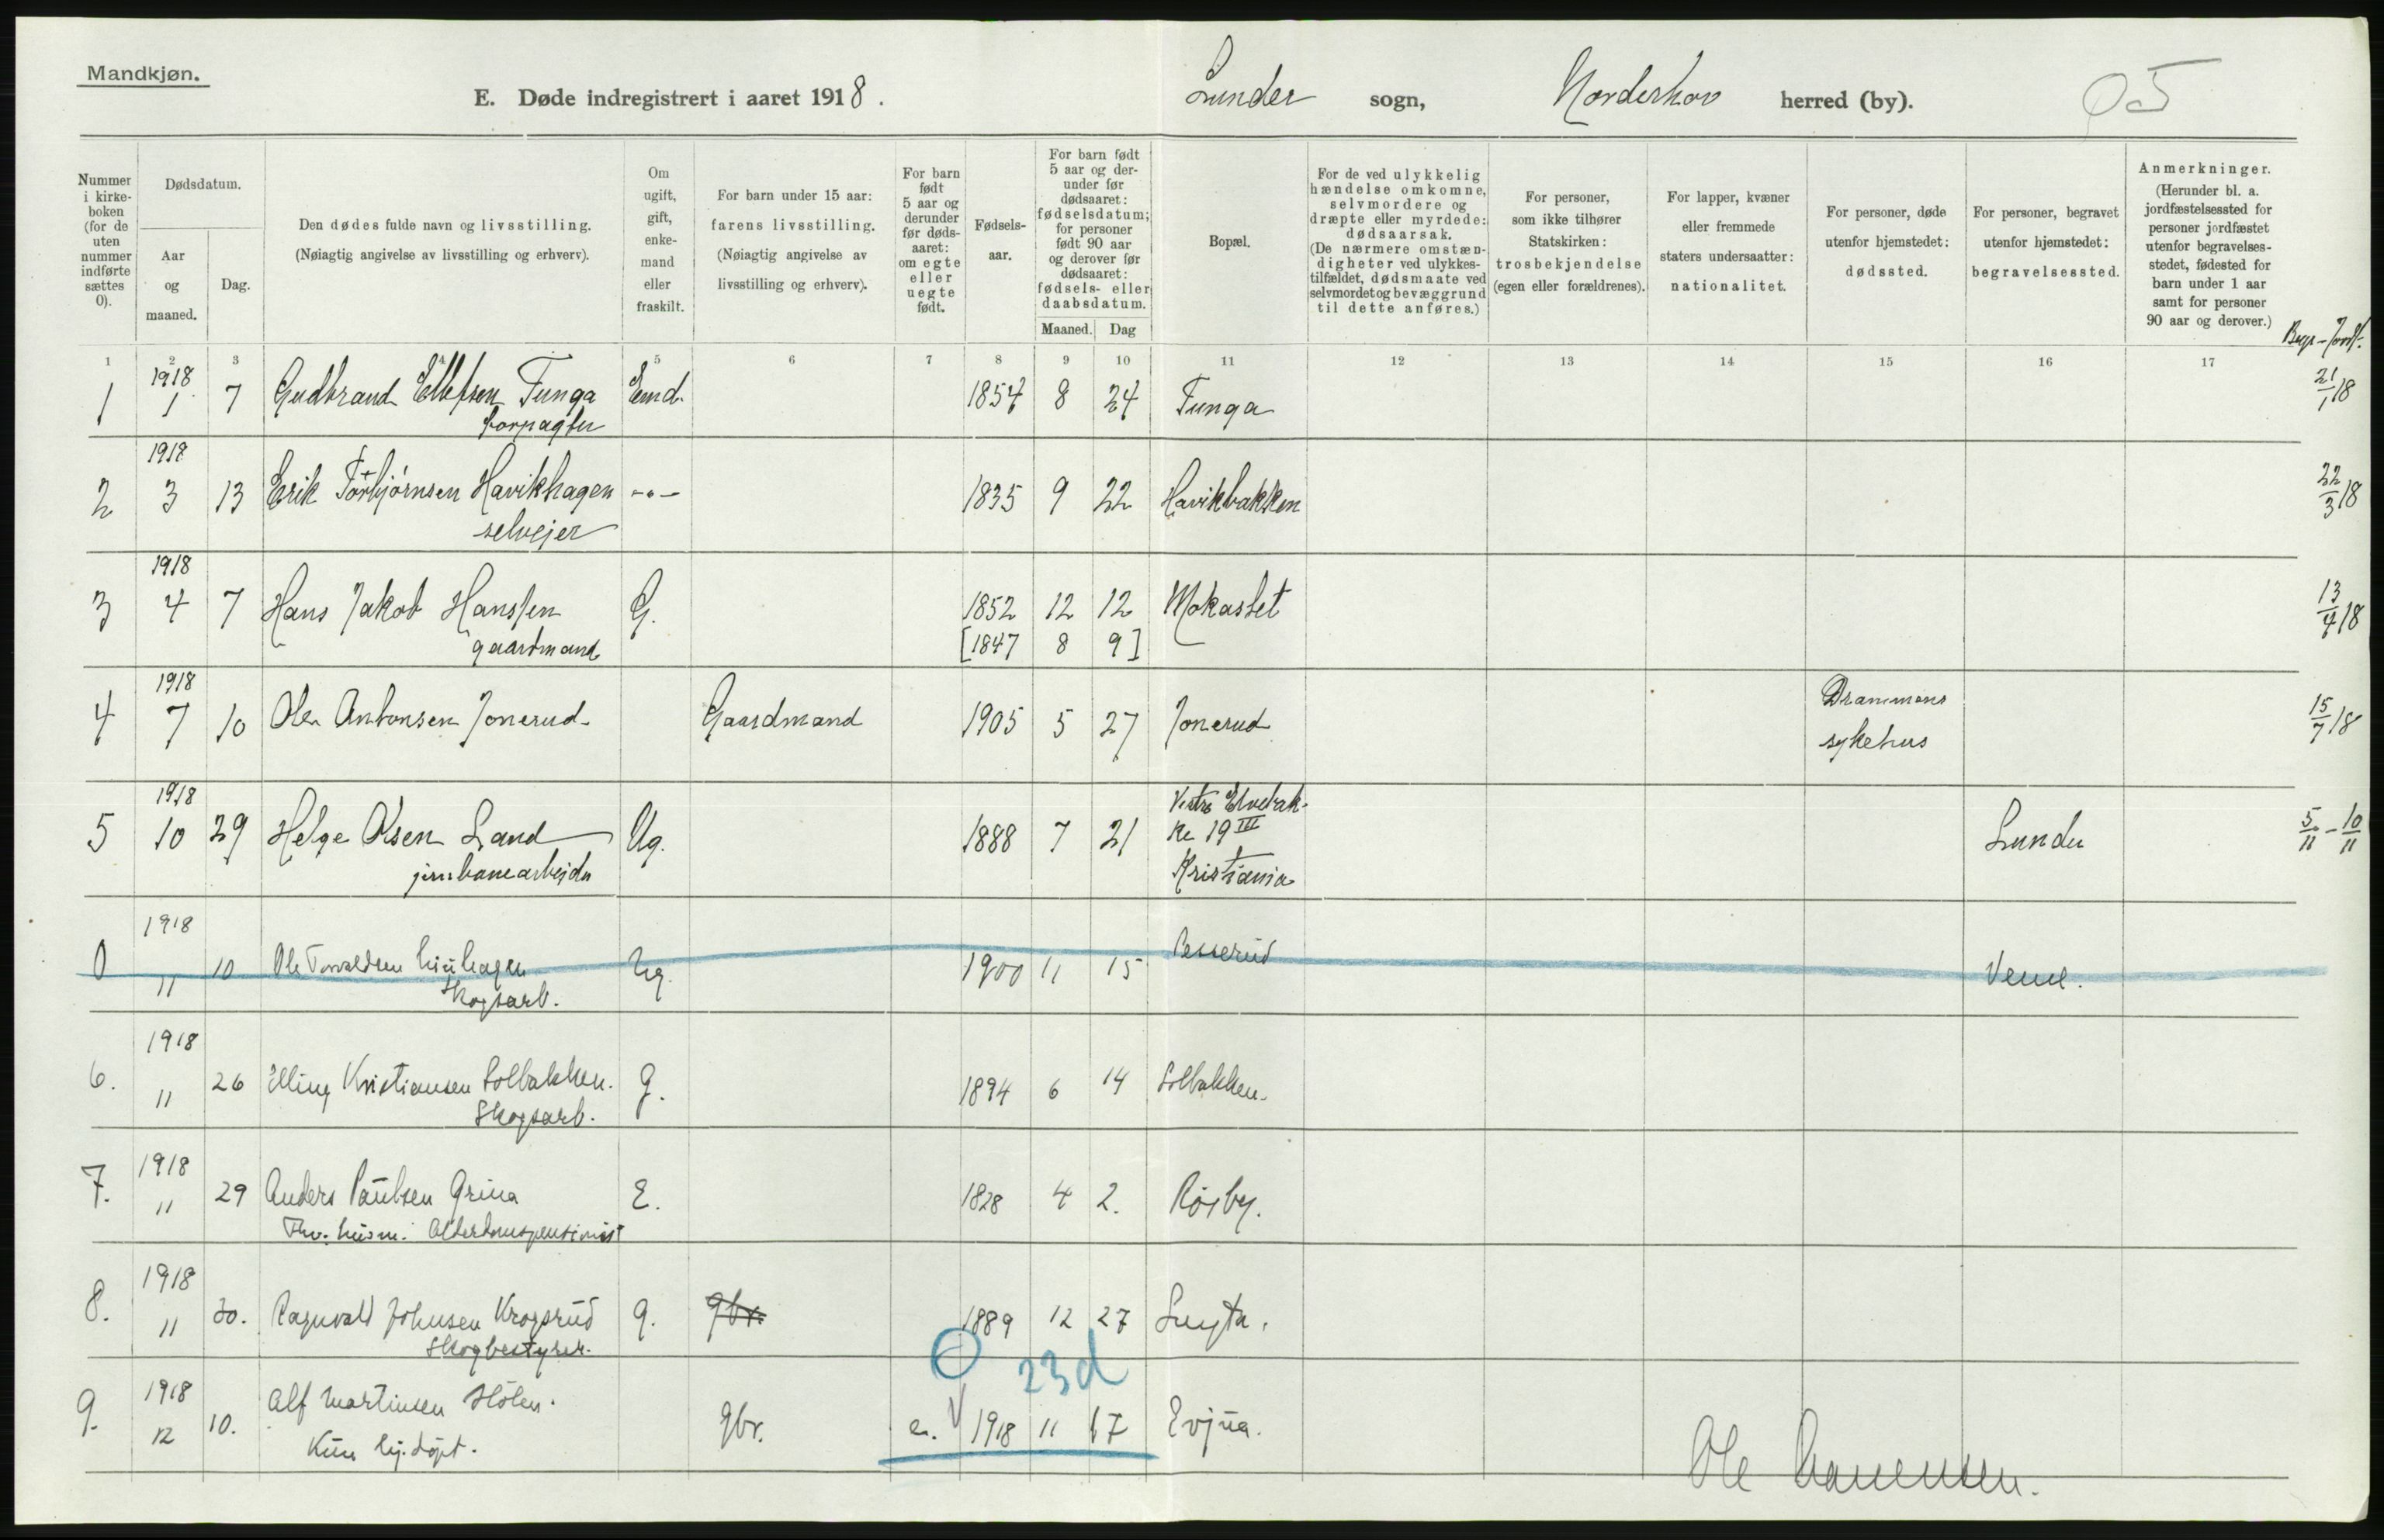 Mandkjøn.
E. Døde indregistrert i aaret 1918.
Lunder sogn, Norderhov herred (by).
05
Nummer i kirkeboken (for de uten nummer indførte sættes 0).
Dødsdatum.
Aar og maaned.
Dag.
Den dødes fulde navn og livsstilling.
(Nøiagtig angivelse av livsstilling og erhverv).
Om ugift, gift, enkemand eller fraskilt.
For barn under 15 aar: farens livsstilling.
(Nøiagtig angivelse av livsstilling og erhverv).
For barn født 5 aar og derunder før dødsaaret: om egte eller uegte født.
Fødselsaar.
For barn født 5 aar og derunder før dødsaaret: fødselsdatum; for personer født 90 aar og derover før dødsaaret: fødsels- eller daabsdatum.
Maaned. Dag
Bopæl.
For de ved ulykkelig hændelse omkomne, selvmordere og dræpte eller myrdede: dødsaarsak.
(De nærmere omstændigheter ved ulykkestilfældet, dødsmaate ved selvmordet og bevæggrund til dette anføres.)
For personer, som ikke tilhører Statskirken: trosbekjendelse (egen eller forældrenes).
For lapper, kvæner eller fremmede staters undersaatter: nationalitet.
For personer, døde utenfor hjemstedet: dødssted.
For personer, begravet utenfor hjemstedet: begravelsessted.
Anmerkninger.
(Herunder bl. a. jordfæstelsessted for personer jordfæstet utenfor begravelsesstedet, fødested for barn under 1 aar samt for personer 90 aar og derover.)
Begr - Jordf.
1 2 3 4 5 6 7 8 9 10 11 12 13 14 15 16 17
1 1918 1 7 Gudbrand Ellefsen Tunga Emd. 1854 8 24 Tunga 21/1 18
forpagter
2 1918 3 13 Erik Torbjørnsen Havikhagen -"- 1835 9 22 Havikbakken 22/3 18
selvejer
3 1918 4 7 Hans Jakob Hanssen G. 1852 12 12 Mokastet 13/4 18
gaardmand [1847 8 9]
4 1918 7 10 Ole Antonsen Jonerud Gaardmand 1905 5 27 Jonerud Drammens sykehus 15/7 18
5 1918 10 29 Helge Olsen Sand Ug. 1888 7 21 Vestre Elvebakke 19 III Kristiania Lunder 5/11 - 10/11
jernbanearbejder
0 1918 11 10 Ole Torvaldsen Ug. 1900 11 15 Veme.
Skogsarb.
6. 1918 11 26 Elling Kristiansen Solbakken. g. 1894 6 14 Solbakken.
Skogsarb.
7. 1918 11 29 Anders Paulsen Grina E. 1828 4 2. Røsby.
Fhv. husm. Alderdomspensionist
8. 1918 11 30. Ragnvald Johnsen Krogsrud g. gbr. 1889 12 27
Skogbestyrer.
0 23d
9. 1918 12 10. Alf Martinsen Hölen. gbr. e. 1918 11 17 Evjua.
Kun hj. døpt.
Ole